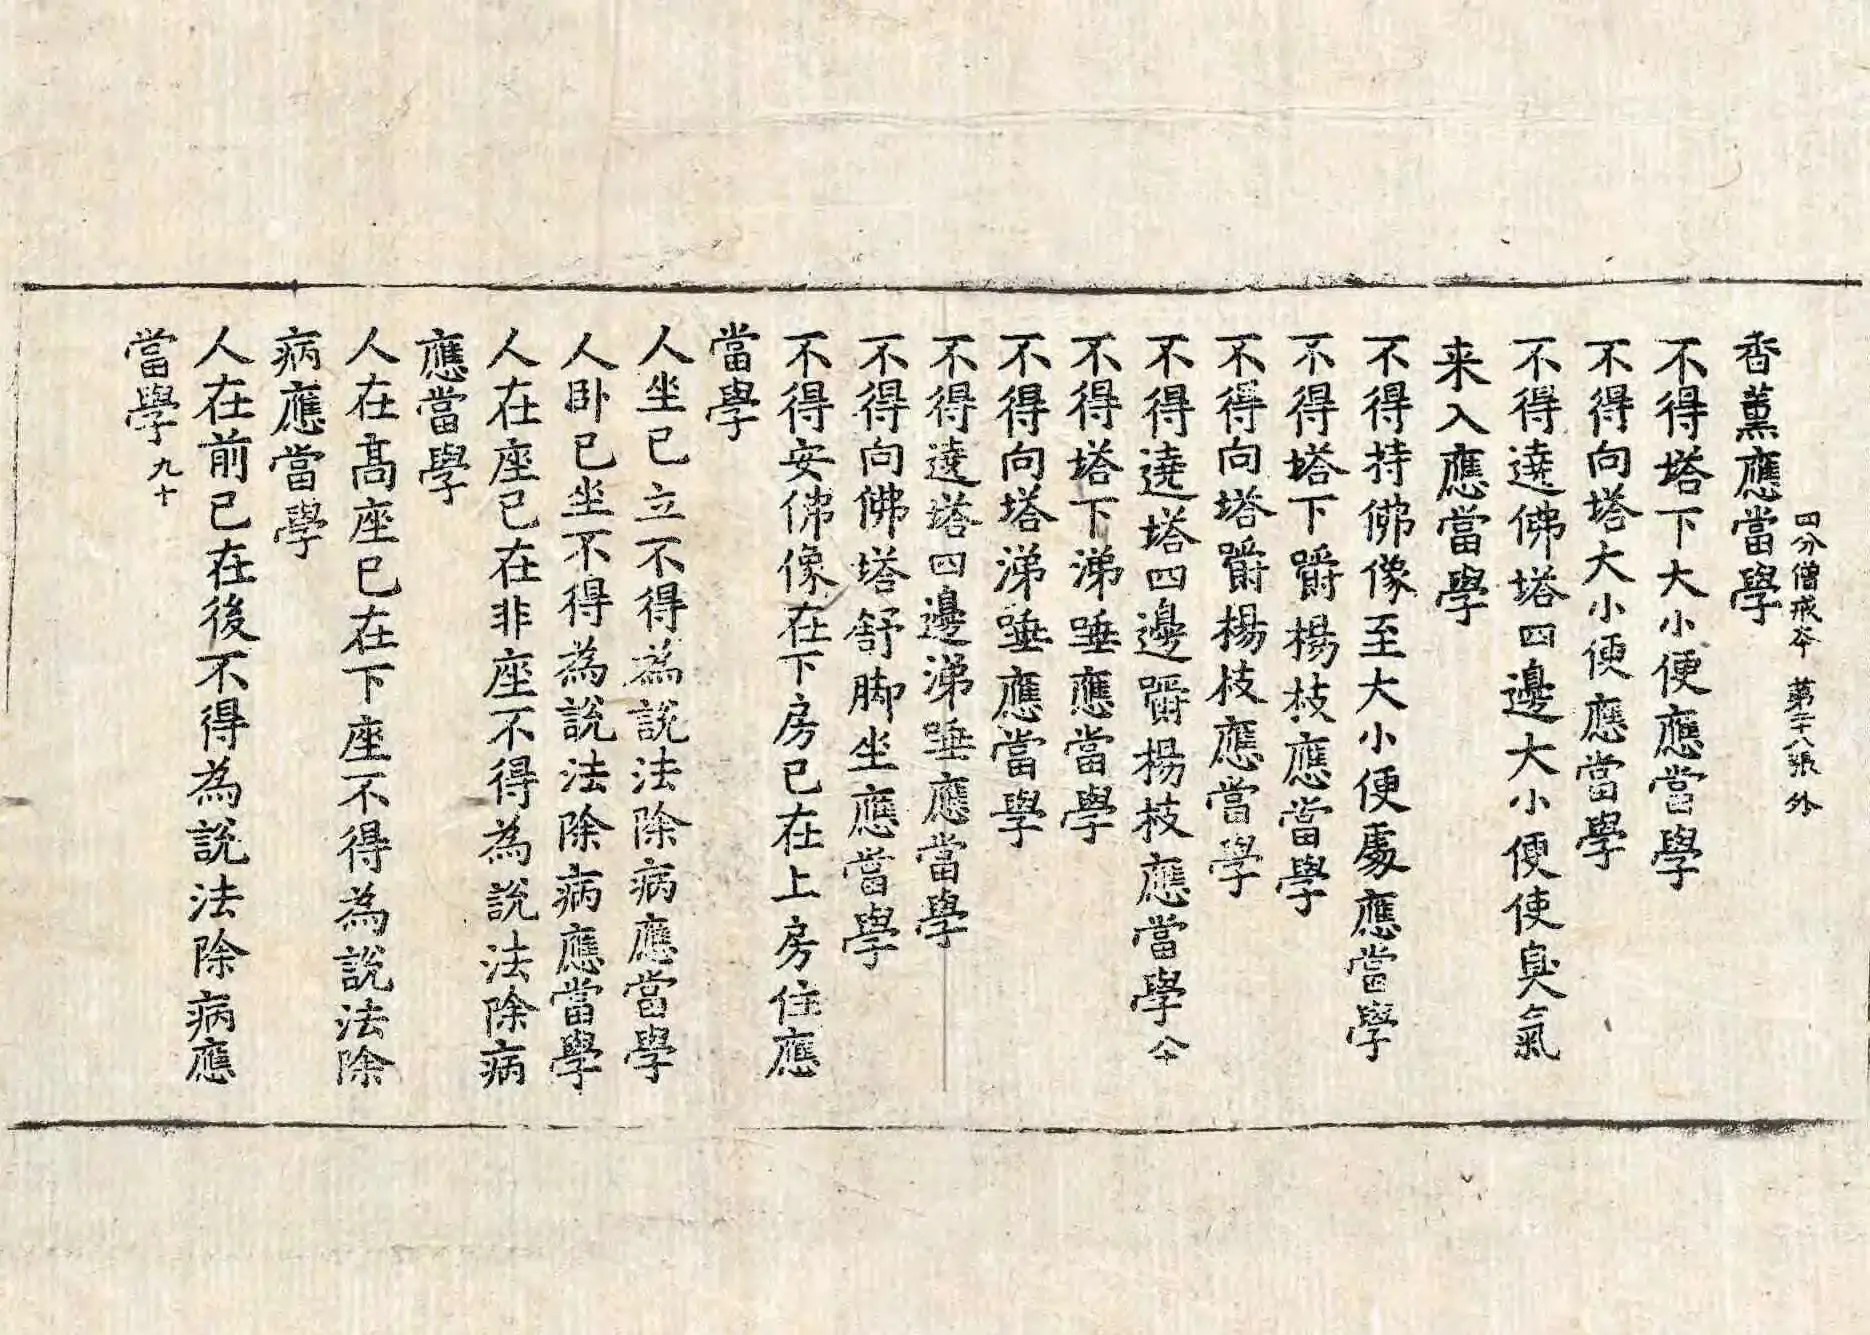 四分僧戒本 第二十八張 外
香薰應當學
不得塔下大小便應當學
不得向塔大小便應當學
不得遶佛塔四邊大小便使臭氣
来入應當學
不得持佛像至大小便處應當學
不得塔下嚼楊枝應當學
不得向塔嚼楊枝應當學
不得遶塔四邊嚼楊枝應當學八十
不得塔下涕唾應當學
不得向塔涕唾應當學
不得遶塔四邊涕唾應當學
不得向佛塔舒脚坐應當學
不得安佛像在下房己在上房住應
當學
人坐己立不得為說法除病應當學
人卧己坐不得為說法除病應當學
人在座己在非座不得為說法除病
應當學
人在高座己在下座不得為說法除
病應當學
人在前己在後不得為說法除病應
當學九十